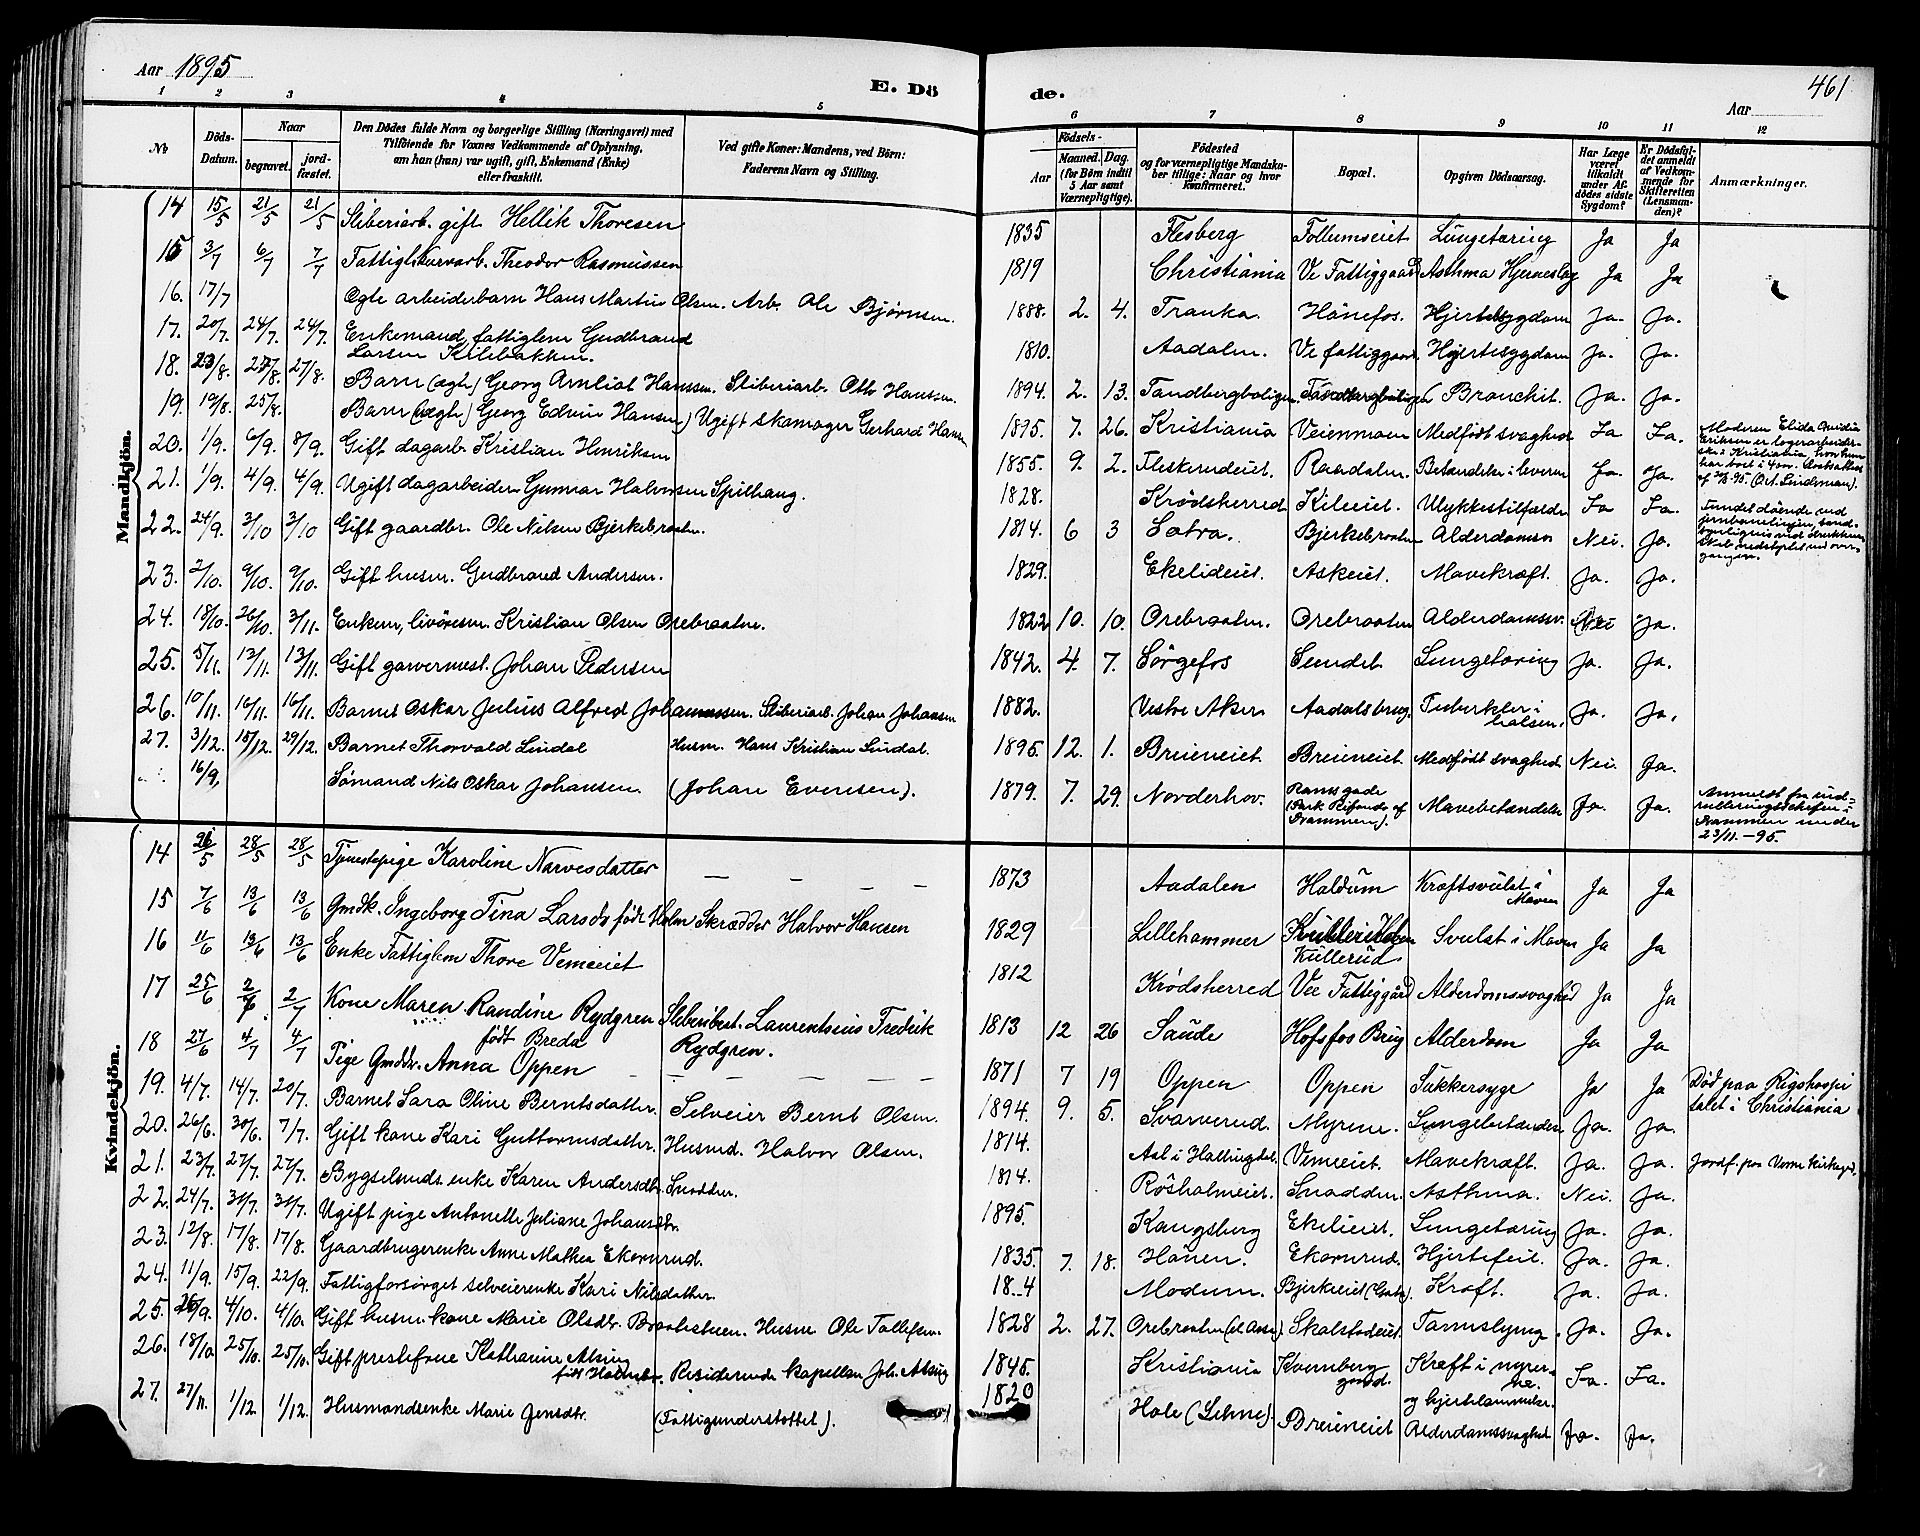 Aar 1895
E. Dö
de.
461
Aar
1 2 3 4 5 6 7 8 9 10 11 12
No
Döds-Datum.
Naar
begravet.
jord-fæstet.
Den Dödes fulde Navn og borgerlige Stilling (Næringsvei) med
Tilföiende for Voxnes Vedkommende af Oplysning,
om han (hun) var ugift, gift, Enkemand (Enke)
eller fraskilt.
Ved gifte Koner: Mandens, ved Börn:
Faderens Navn og Stilling.
Födsels-
Aar
Maaned. Dag.
(for Börn indtil
5 Aar samt
Værnepligtige).
Födested
og for værnepligtige Mandska-
ber tillige: Naar og hvor
konfirmeret.
Bopæl.
Opgiven Dödsaarsag.
Har Læge
været
tilkaldt
under Af-
dödes sidste
Sygdom?
Er Dödsfal-
det anmeldt
af Vedkom-
mende for
Skifteretten
(Lensman-
den)?
Anmærkninger.
Mandkjön.
14 15/5 21/5 21/5 Sliberiarb. gift Hellik Thoresen 1835 Flesberg Follumseiet Lungetæring Ja Ja
15 3/7 6/7 7/7 Fattigl. Kurvarb. Theodor Rasmussen 1819 Christiania Ve Fattiggaard Asthma Hjerneslag Ja Ja
16. 17/7 Ogte arbeiderbarn Hans Martin Olsen. Arb. Ole Bjørnsen. 1888. 2. 4. Tranka. Hönefos. Hjertesygdom Ja. Ja.
17. 20/7. 24/7. 24/7. Enkemand, fattiglem Gudbrand
Larsen Kilebakken. 1810. Aadalen. Ve fattiggaard Hjertesygdom Ja. Ja.
18. 23/8. 27/8. 27/8. Barn (ægte) Georg Amliot Hanssen. Sliberiarb. Otto Hanssen. 1894. 2. 13. Tandbergboligen. Tandbergboligen Bronchit. Ja. Ja.
19. 19/8. 25/8. Barn (uægte) Georg Edvin Hansen) Ugift skomager Gerhard Hansen 1895. 7. 26. Kristiania Veienmoen Medfödt svaghed Ja Ja.
Moderen Elida Ovidia
Eriksen er logerarbeider-
ske i Kristiania, hvor hun
har bost i 4 m.
20. 1/9. 6/9. 8/9. Gift dagarb. Kristian Henriksen 1855. 9. 2. Fleskerudeiet. Raadalen. Betændelse i leveren Ja. Ja.
21. 1/9. 4/9. 4/9. Ugift dagarbeider Gunnar Halvorsen Spithaug. 1828. Krödsherred Kileeiet. Ulykkestilfælde Ja Ja.
Fundet döende ved
jernbanelinjen, sand-
synligvis ved
22. 24/9. 3/10 3/10 Gift gaardbr. Ole Nilsen Bjerkebraaten. 1814. 6 3 Sætra. Bjerkebraaten Alderdomssv Nei. Ja.
23. 2/10. 9/10. 9/10. Gift husm. Gudbrand Andersen. 1829. Ekelideiet. Askeiet. Mavekræft. Ja. Ja.
24. 18/10. 26/10. 3/11. Enkem, livöresm. Kristian Olsen Orebraaten. 1822 10. 10. Orebraaten. Orebraaten Alderdomssv. Nei Ja.
25. 5/11. 13/11. 13/11. Gift garvermest. Johan Pedersen 1842. 4. 7. Sörgefos Sundet. Lungetæring Ja. Ja.
26. 10/11. 16/11. 16/11. Barnet Oskar Julius Alfred Johannessen. Sliberiarb. Johan Johansen 1882. Vestre Aker Aadalsbrug. Tuberkler i
halsen. Ja. Ja.
27. 3/12. 15/12. 29/12. Barnet Thorvald Lindal Husm. Hans Kristian Lindal. 1895. 12. 1. Breieneiet. Breieneiet. Medfödt svaghed Nei. Ja.
16/9. Sömand Nils Oskar Johansen. (Johan Evensen). 1879. 7. 29. Norderhov. Ramsgade
Drammen). Mavebetændelse Ja. Ja.
Anmeldt fra ind-
rulleringschefen i
Drammen under
23/11.-95.
Kvindekjön.
14 26/5 28/5 28/5 Tjenestepige Karoline Narvesdatter — — — — 1873 Aadalen Haldum Kræftsvulst i
Maven Ja Ja
15 7/6 13/6 13/6 Gmdk. Ingeborg Tina Larsdr födt Holm Skrædder Halvor Hansen 1829 Lillehammer
Kullerud Svulst i Maven Ja Ja
16 11/6 13/6 13/6 Enke Fattiglem Thore Vemeeiet 1812 Krödsherred Vee Fattiggård Alderdomssvaghed Ja Ja
17 25/6 2/7 2/7 Kone Maren Randine Rydgren Sliberibest. Laurentsius Fredrik
födt Breda Rydgren. 1813 12 26 Saude Hofsfos Brug Alderdom Ja Ja
18 27/6 4/7 4/7 Pige Gmddr. Anna Oppen — — — — — 1871 7 19 Oppen Oppen Sukkersyge Ja Ja Död paa Rigshospi
talet i Christiania
19. 4/7. 14/7. 20/7. Barnet Sara Oline Berntsdatter. Selveier Bernt Olsen. 1894. 9. 5. Svarverud. Myrene. Lungebetændelse Ja. Ja.
20. 26/6. 30/6. 7/7. Gift kone Kari Guttormsdatter Husmd. Halvor Olsen. 1814. Aal i Hallingdal. Vemeeiet. Mavekræft. Ja. Ja. Jordf. paa Veme kirkegd.
21. 23/7. 27/7. 27/7. Bygselmds. enke Karen Andersdtr. Snadden. 1814. Rösholmeiet. Snadden. Asthma. Nei. Ja.
22. 24/7. 31/7. 31/7. Ugift pige Antonette Juliane Johansdtr. 1895. Kongsberg Ekelieiet. Lungetæring Ja. Ja.
23. 12/8. 17/8. 17/8. Gaardbrugerenke Anne Mathea Ekornrud. 1835. 7. 18. Hönen. Ekornrud. Hjertefeil. Ja. Ja.
24. 11/9. 15/9. 22/9. Fattigforsörget selveierenke Kari Nilsdatter. 18.4 Modum. Bjerkeeiet Kræft. Ja. Ja.
25. 26/9. 4/10. 4/10. Gift husm. kone Marie Olsdtr. Braatestuen. Husm Ole Tollefsen. 1828 2. 27. Orebraaten Skalstadeiet. Ja. Ja.
26. 18/10. 25/10. 25/10. Gift prestefrue Katharine Alsing
födt Residerende kapellan Joh. Alsing 1845. Kristiania Kvernberg
gaard. Kræft i nyrer-
ne. Ja. Ja.
og hjertelammelse.
27. 27/11. 1/12. 1/12. Husmandsenke Marie Jensdtr. (Fattigunderstöttet). 1820 Hole Breieneiet Alderdomssvaghed Ja. Ja.